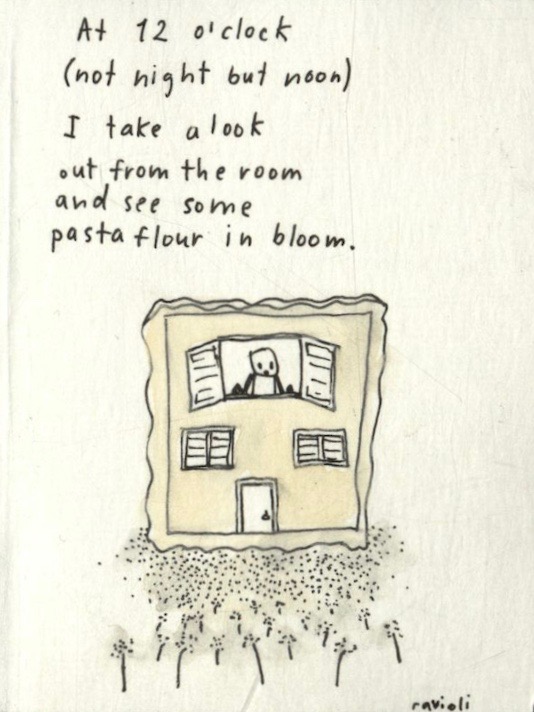 At 12 o'clock
(not night but noon)
I take a look
out from the room
and see some
pasta flour in bloom.
ravioli